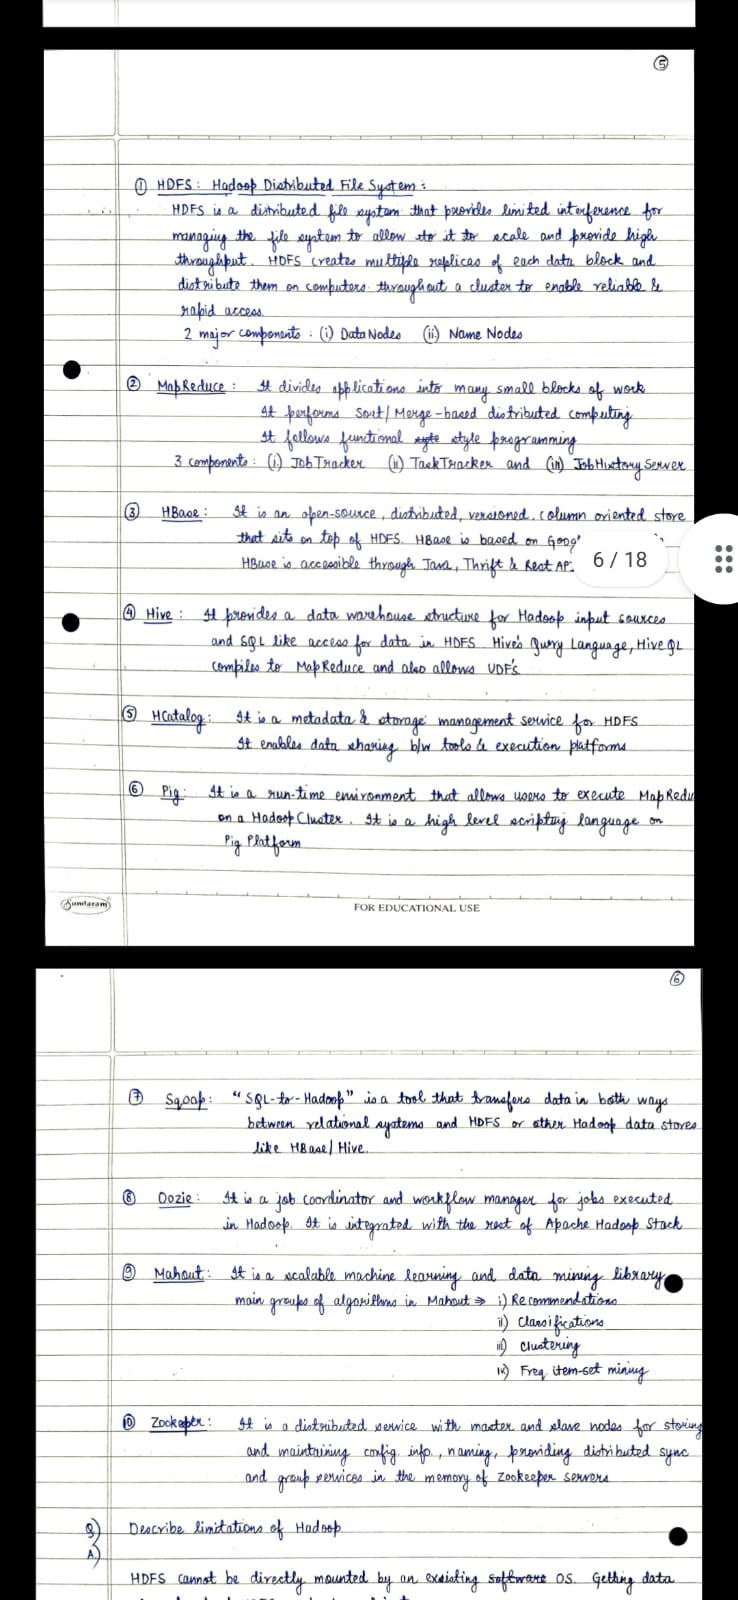 5
① HDFS : Hadoop Distributed File System :
HDFS is a distributed file system that provides limited interference for
managing the file system to allow to it to scale and provide high
throughput. HDFS creates multiple replicas of each data block and
distribute them on computers throughout a cluster to enable reliable &
rapid access.
2 major components : (i) DataNodes (ii) Name Nodes
② MapReduce : It divides applications into many small blocks of work
It performs Sort/Merge-based distributed computing
It follows functional style programming
3 components : (i) JobTracker (ii) TaskTracker and (iii) JobHistory Server
③ HBase : It is an open-source, distributed, versioned, column oriented store
that sits on top of HDFS. HBase is based on Goog
HBase is accessible through Java, Thrift & Rest AP
6 / 18
④ Hive : It provides a data warehouse structure for Hadoop input sources
and SQL like access for data in HDFS. Hive's Query Language, Hive QL
compiles to MapReduce and also allows UDF's
⑤ HCatalog : It is a metadata & storage management service for HDFS
It enables data sharing b/w tools & execution platforms
⑥ Pig : It is a run-time environment that allows users to execute MapRedu
on a Hadoop Cluster. It is a high level scripting language on
Pig Platform
Sundaram
FOR EDUCATIONAL USE
6
⑦ Sqoop : "SQL-to-Hadoop" is a tool that transfers data in both ways
between relational systems and HDFS or other Hadoop data stores
like HBase/Hive.
⑧ Oozie : It is a job coordinator and workflow manager for jobs executed
in Hadoop. It is integrated with the rest of Apache Hadoop Stack
⑨ Mahout : It is a scalable machine learning and data mining library
main groups of algorithms in Mahout ⇒ i) Recommendations
ii) Classifications
iii) Clustering
iv) Freq item-set mining
⑩ Zookeeper : It is a distributed service with master and slave nodes for storing
and maintaining config. info., naming, providing distributed sync
and group services in the memory of Zookeeper servers
Q) Describe limitations of Hadoop
A)
HDFS cannot be directly mounted by an existing software OS. Getting data